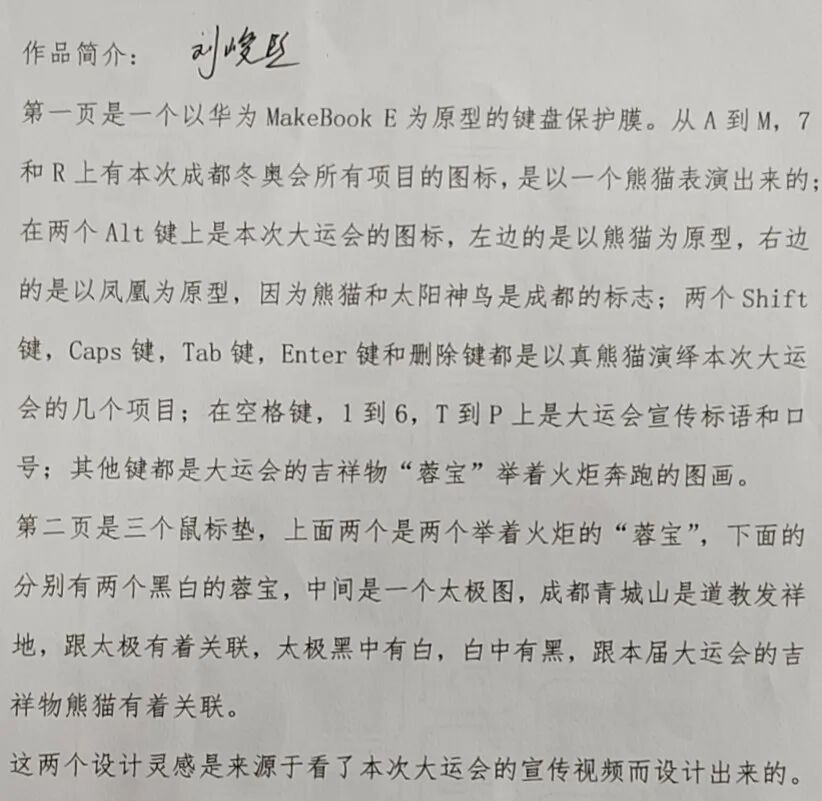 作品简介： 刘峻
第一页是一个以华为 MakeBook E 为原型的键盘保护膜。从 A 到 M，7
和 R 上有本次成都冬奥会所有项目的图标，是以一个熊猫表演出来的；
在两个 Alt 键上是本次大运会的图标，左边的是以熊猫为原型，右边
的是以凤凰为原型，因为熊猫和太阳神鸟是成都的标志；两个 Shift
键，Caps 键，Tab 键，Enter 键和删除键都是以真熊猫演绎本次大运
会的几个项目；在空格键，1 到 6，T 到 P 上是大运会宣传标语和口
号；其他键都是大运会的吉祥物“蓉宝”举着火炬奔跑的图画。
第二页是三个鼠标垫，上面两个是两个举着火炬的“蓉宝”，下面的
分别有两个黑白的蓉宝，中间是一个太极图，成都青城山是道教发祥
地，跟太极有着关联，太极黑中有白，白中有黑，跟本届大运会的吉
祥物熊猫有着关联。
这两个设计灵感是来源于看了本次大运会的宣传视频而设计出来的。